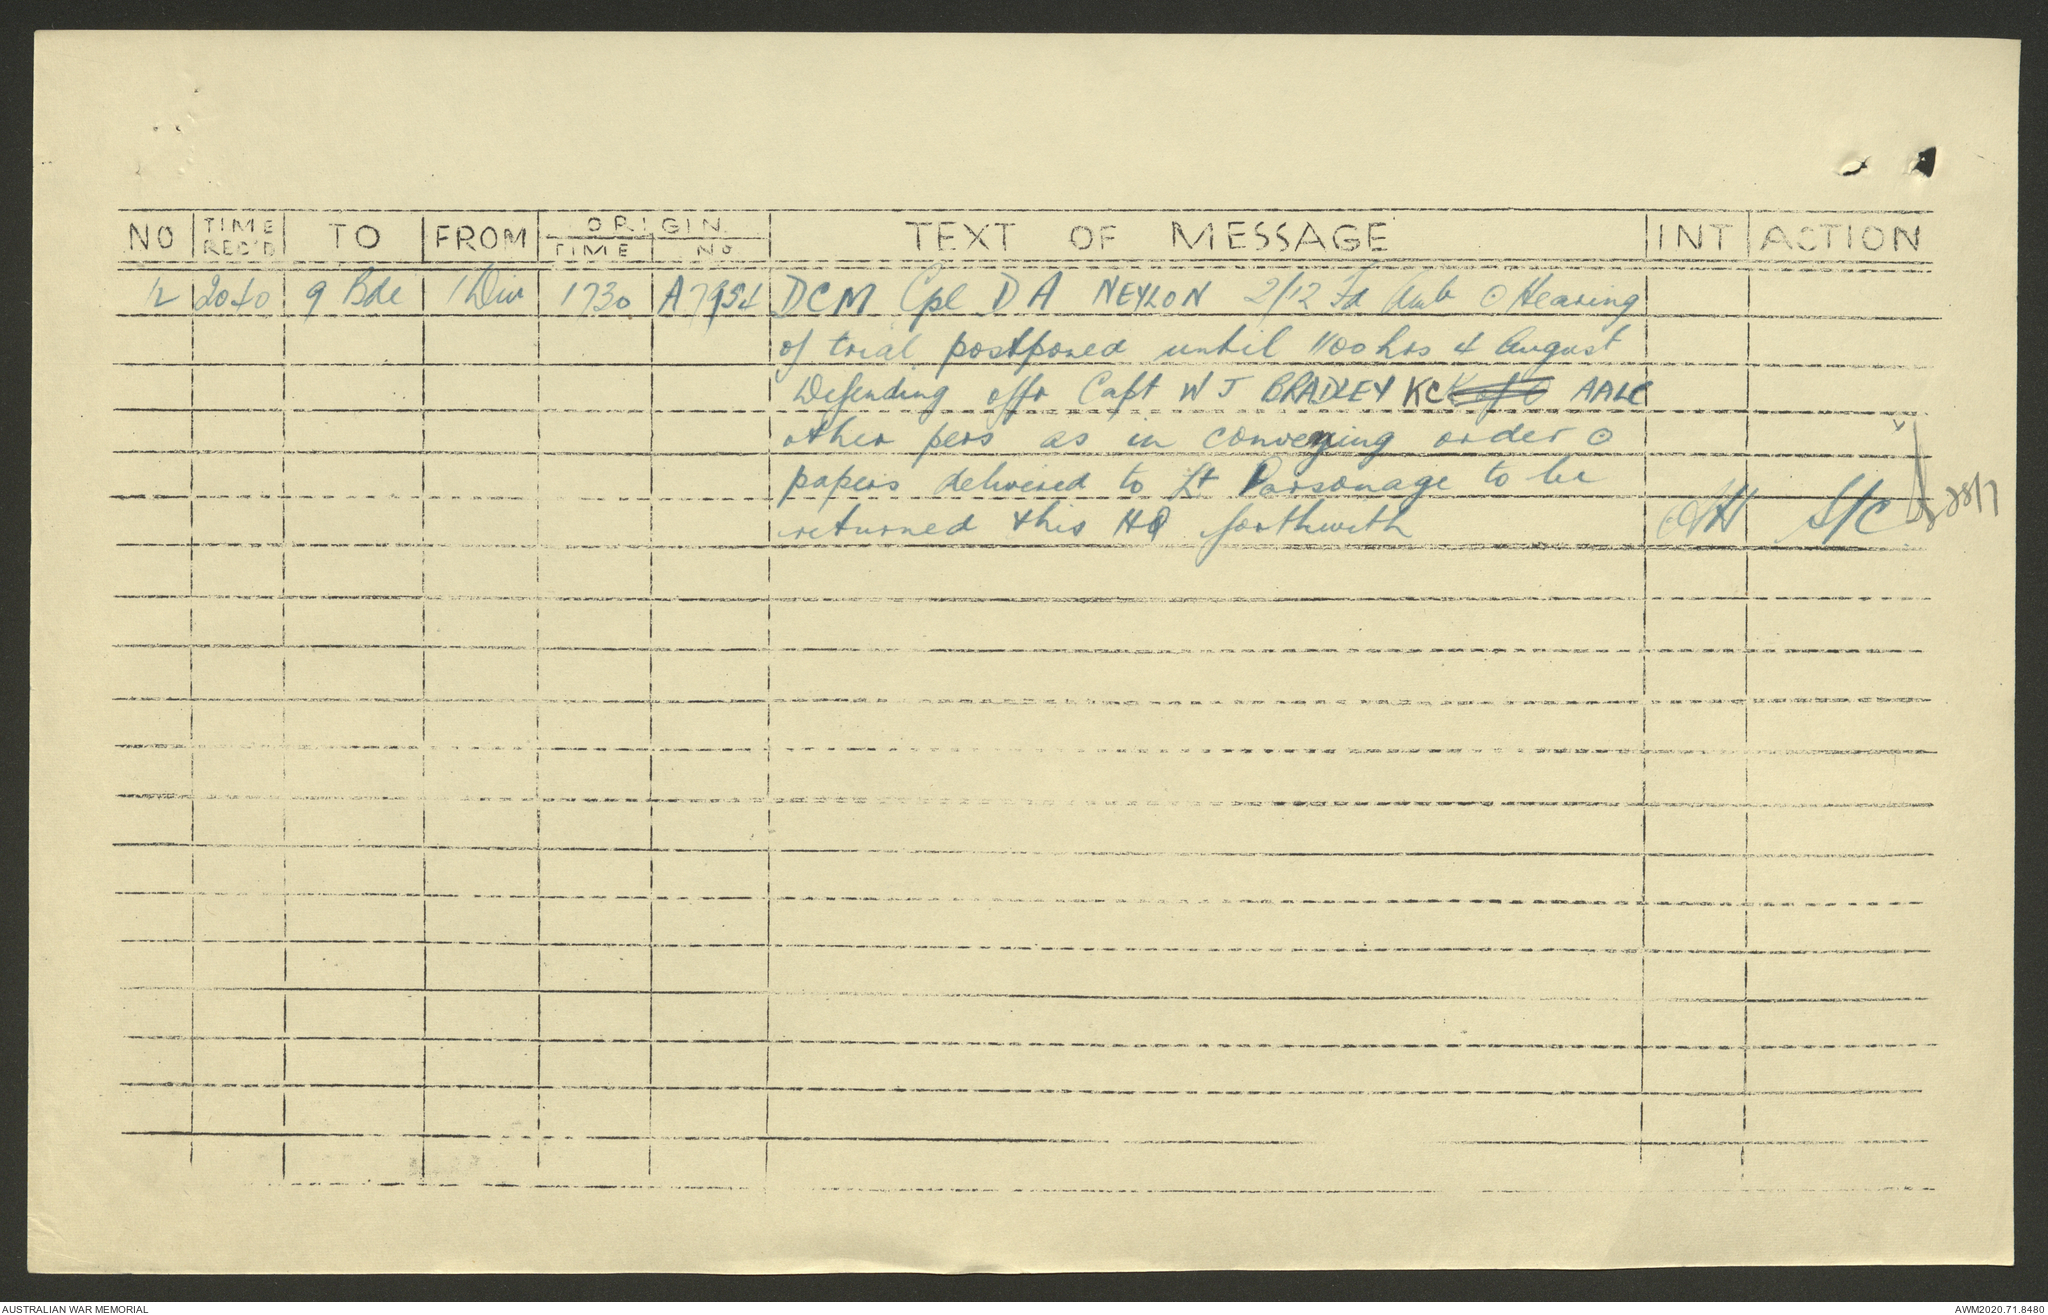 NO TIME REC'D TO FROM ORIGIN TIME NO TEXT OF MESSAGE INT ACTION
12 2040 9 Bde 1 Div 1730 A7954 DCM Cpl D A NEYLON 2/12 Fd Amb ⊙ Hearing
of trial postponed until 1100 hrs 4 August
Defending offr Capt W J BRADLEY KC AALC
other pers as in convening order ⊙
papers delivered to Lt Parsonage to be
returned this HQ forthwith S/C 28/7
AUSTRALIAN WAR MEMORIAL AWM2020.71.8480